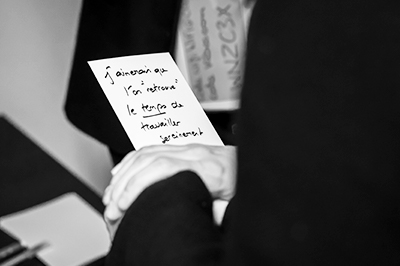 j'aimerais que
l'on "retrouve"
le temps de
travailler
sereinement
NNZC3X